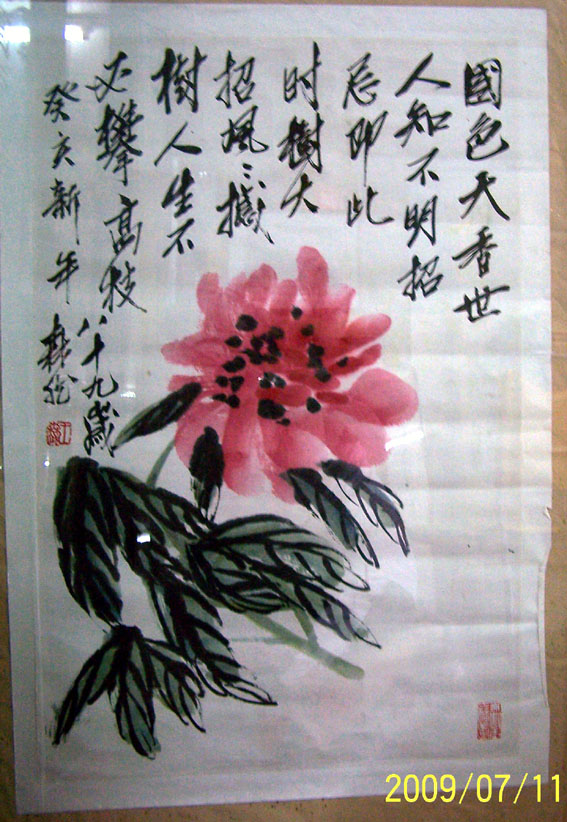 國色天香世
人知不明招
忌即此
时樹大
招風:撼
樹人生不
必攀高枝
八十九歲
癸亥新年
2009/07/11